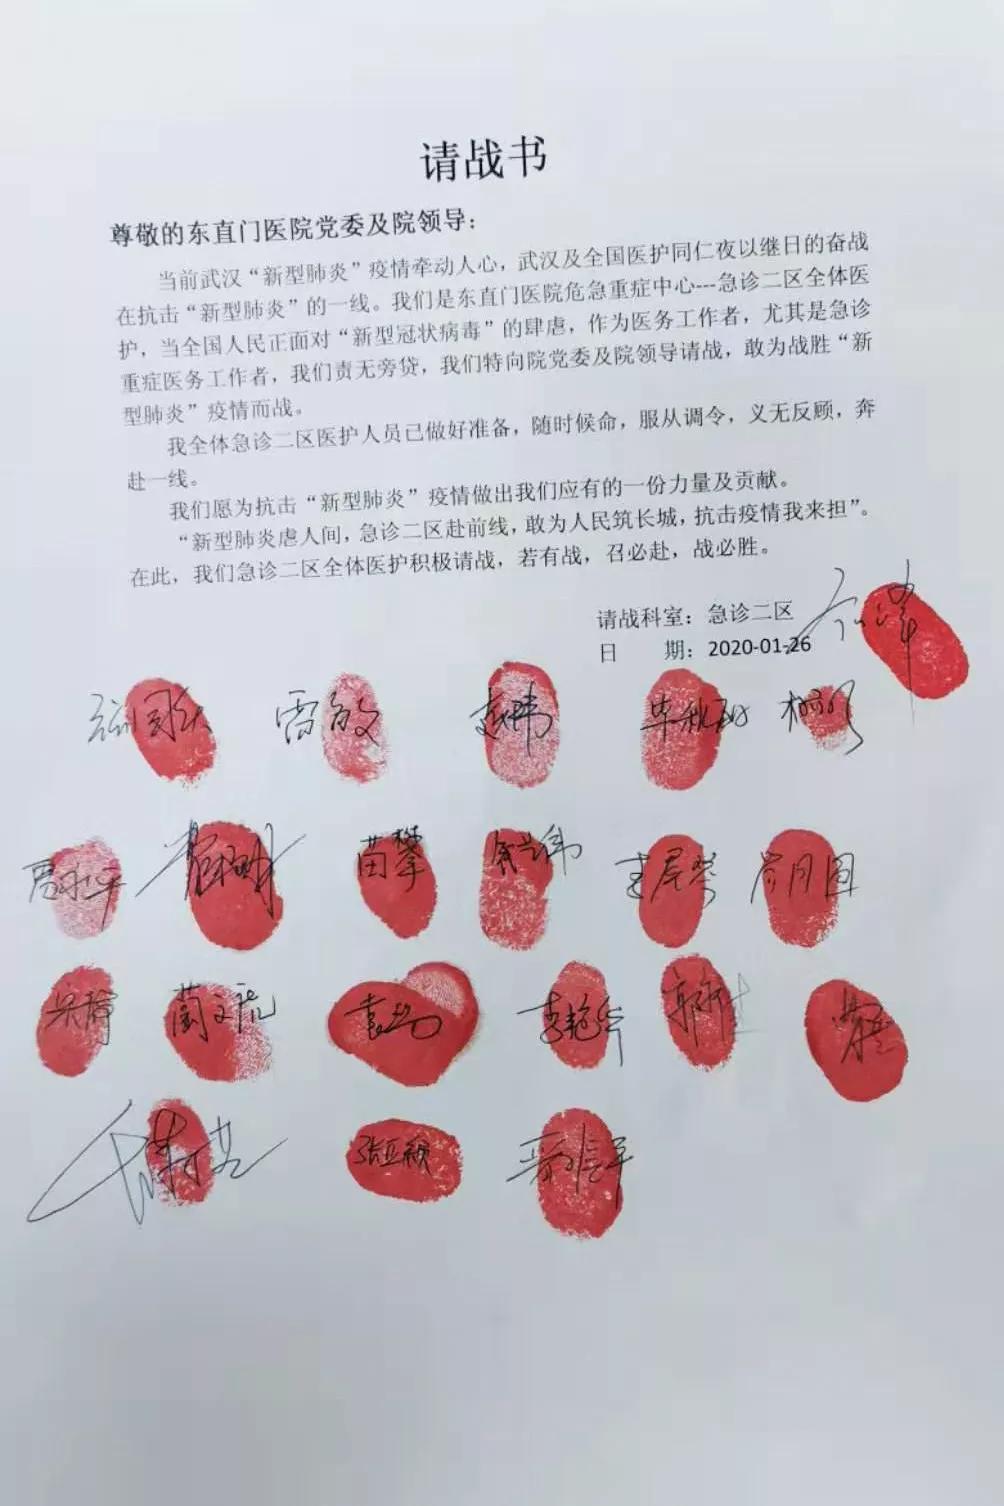 请战书
尊敬的东直门医院党委及院领导：
当前武汉“新型肺炎”疫情牵动人心，武汉及全国医护同仁夜以继日的奋战
在抗击“新型肺炎”的一线。我们是东直门医院危急重症中心---急诊二区全体医
护，当全国人民正面对“新型冠状病毒”的肆虐，作为医务工作者，尤其是急诊
重症医务工作者，我们责无旁贷，我们特向院党委及院领导请战，敢为战胜“新
型肺炎”疫情而战。
我全体急诊二区医护人员已做好准备，随时候命，服从调令，义无反顾，奔
赴一线。
我们愿为抗击“新型肺炎”疫情做出我们应有的一份力量及贡献。
“新型肺炎虐人间，急诊二区赴前线，敢为人民筑长城，抗击疫情我来担”。
在此，我们急诊二区全体医护积极请战，若有战，召必赴，战必胜。
请战科室：急诊二区
日 期：2020-01-26
雷敏 赵玮 毕秋丽
苗攀
宋静 蔺文龙 李艳华
张亚颖